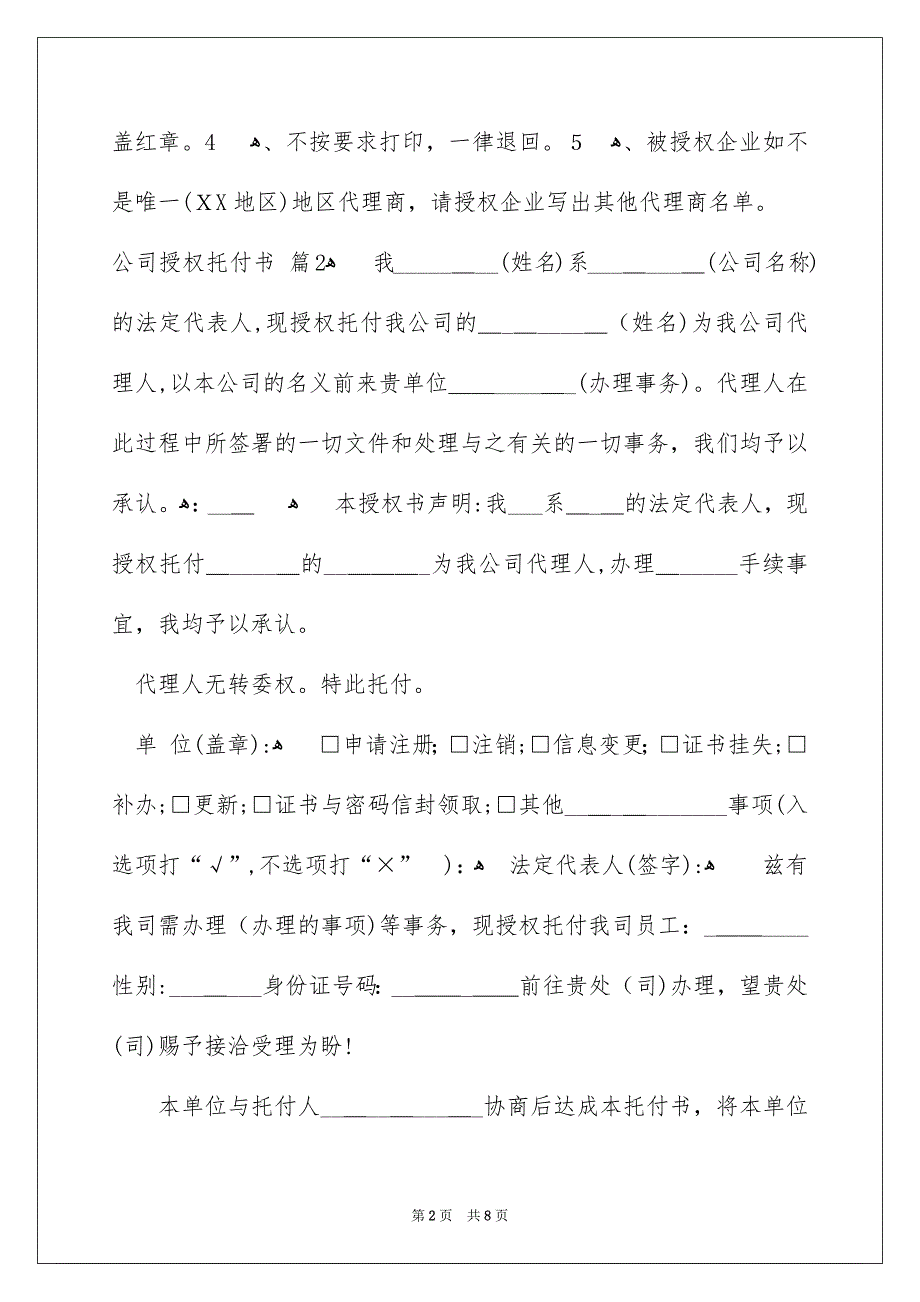 盖红章。4 ﻫ、不按要求打印，一律退回。5 ﻫ、被授权企业如不
是唯一(XX地区)地区代理商，请授权企业写出其他代理商名单。
公司授权托付书 篇2ﻫ 我_________(姓名)系__________(公司名称)
的法定代表人,现授权托付我公司的___________（姓名)为我公司代
理人,以本公司的名义前来贵单位___________(办理事务)。代理人在
此过程中所签署的一切文件和处理与之有关的一切事务，我们均予以
承认。ﻫ：____ ﻫ 本授权书声明:我___系_____的法定代表人，现
授权托付________的_________为我公司代理人,办理_______手续事
宜，我均予以承认。
代理人无转委权。特此托付。
单 位(盖章):ﻫ □申请注册；□注销;□信息变更；□证书挂失;□
补办;□更新;□证书与密码信封领取;□其他______________事项(入
选项打“√”,不选项打“×” )：ﻫ 法定代表人(签字):ﻫ 兹有
我司需办理（办理的事项)等事务，现授权托付我司员工：_________
性别:________身份证号码：___________前往贵处（司)办理，望贵处
(司)赐予接洽受理为盼!
本单位与托付人______________协商后达成本托付书，将本单位
第2页 共8页